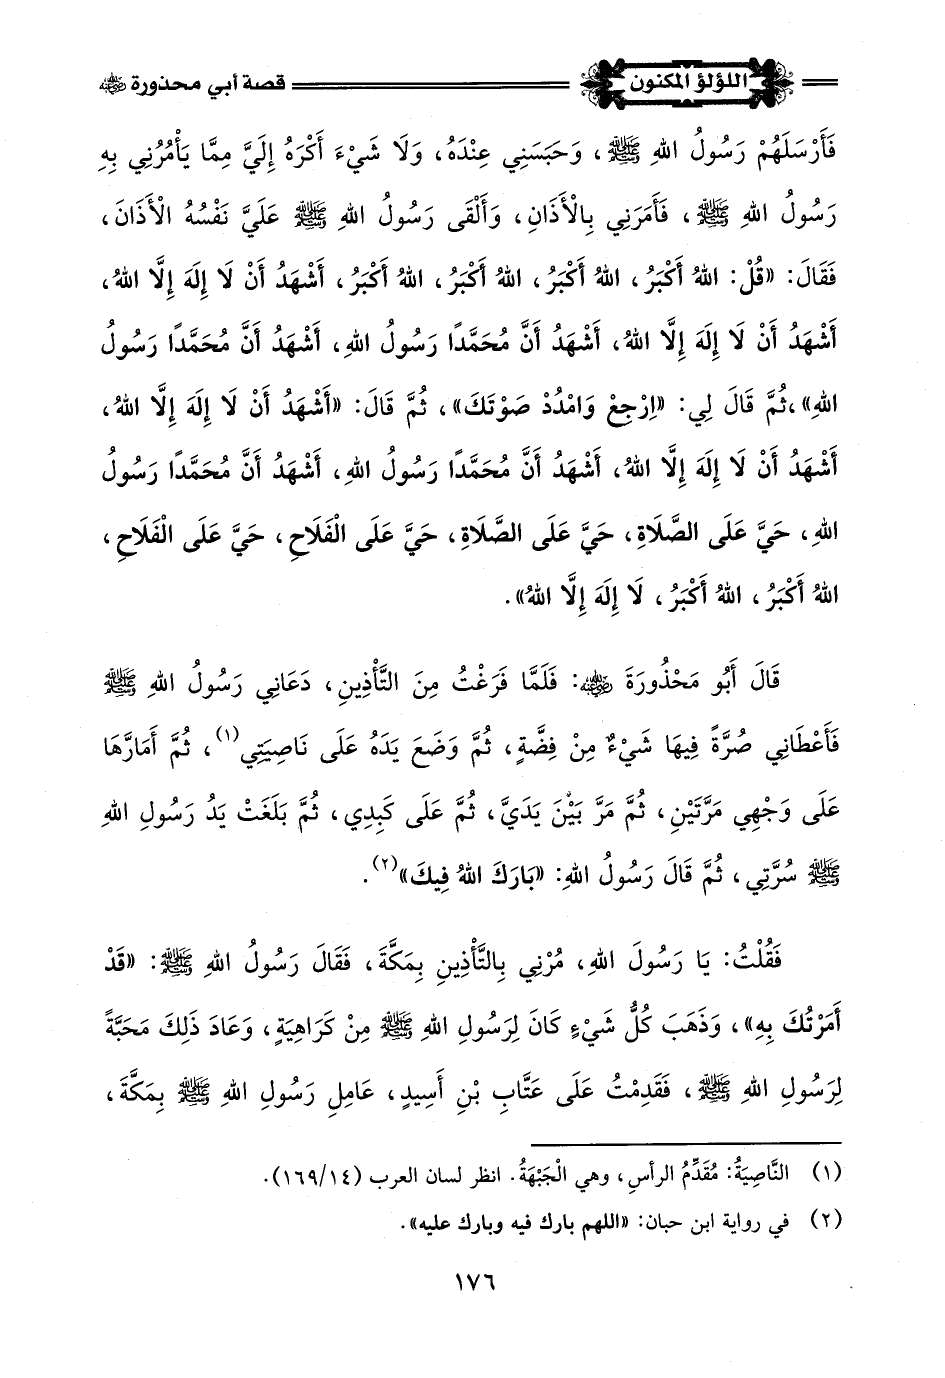 اللؤلؤ المكنون قصة أبي محذورة رضي الله عنه
فَأَرْسَلَهُمْ رَسُولُ اللهِ ﷺ، وَحَبَسَنِي عِنْدَهُ، وَلَا شَيْءَ أَكْرَهُ إِلَيَّ مِمَّا يَأْمُرُنِي بِهِ
رَسُولُ اللهِ ﷺ، فَأَمَرَنِي بِالْأَذَانِ، وَأَلْقَى رَسُولُ اللهِ ﷺ عَلَيَّ نَفْسُهُ الْأَذَانَ،
فَقَالَ: «قُلْ: اللهُ أَكْبَرُ، اللهُ أَكْبَرُ، اللهُ أَكْبَرُ، اللهُ أَكْبَرُ، أَشْهَدُ أَنْ لَا إِلَهَ إِلَّا اللهُ،
أَشْهَدُ أَنْ لَا إِلَهَ إِلَّا اللهُ، أَشْهَدُ أَنَّ مُحَمَّدًا رَسُولُ اللهِ، أَشْهَدُ أَنَّ مُحَمَّدًا رَسُولُ
اللهِ»، ثُمَّ قَالَ لِي: «اِرْجِعْ وَامْدُدْ صَوْتَكَ»، ثُمَّ قَالَ: «أَشْهَدُ أَنْ لَا إِلَهَ إِلَّا اللهُ،
أَشْهَدُ أَنْ لَا إِلَهَ إِلَّا اللهُ، أَشْهَدُ أَنَّ مُحَمَّدًا رَسُولُ اللهِ، أَشْهَدُ أَنَّ مُحَمَّدًا رَسُولُ
اللهِ، حَيَّ عَلَى الصَّلَاةِ، حَيَّ عَلَى الصَّلَاةِ، حَيَّ عَلَى الْفَلَاحِ، حَيَّ عَلَى الْفَلَاحِ،
اللهُ أَكْبَرُ، اللهُ أَكْبَرُ، لَا إِلَهَ إِلَّا اللهُ».
قَالَ أَبُو مَحْذُورَةَ رضي الله عنه: فَلَمَّا فَرَغْتُ مِنَ التَّأْذِينِ، دَعَانِي رَسُولُ اللهِ ﷺ
فَأَعْطَانِي صُرَّةً فِيهَا شَيْءٌ مِنْ فِضَّةٍ، ثُمَّ وَضَعَ يَدَهُ عَلَى نَاصِيَتِي(١)، ثُمَّ أَمَارَّهَا
عَلَى وَجْهِي مَرَّتَيْنِ، ثُمَّ مَرَّ بَيْنَ يَدَيَّ، ثُمَّ عَلَى كَبِدِي، ثُمَّ بَلَغَتْ يَدُ رَسُولِ اللهِ
ﷺ سُرَّتِي، ثُمَّ قَالَ رَسُولُ اللهِ: «بَارَكَ اللهُ فِيكَ»(٢).
فَقُلْتُ: يَا رَسُولَ اللهِ، مُرْنِي بِالتَّأْذِينِ بِمَكَّةَ، فَقَالَ رَسُولُ اللهِ ﷺ: «قَدْ
أَمَرْتُكَ بِهِ»، وَذَهَبَ كُلُّ شَيْءٍ كَانَ لِرَسُولِ اللهِ ﷺ مِنْ كَرَاهِيَةٍ، وَعَادَ ذَلِكَ مَحَبَّةً
لِرَسُولِ اللهِ ﷺ، فَقَدِمْتُ عَلَى عَتَّابِ بْنِ أَسِيدٍ، عَامِلِ رَسُولِ اللهِ ﷺ بِمَكَّةَ،
(١) النَّاصِيَةُ: مُقَدِّمُ الرأسِ، وهي الْجَبْهَةُ. انظر لسان العرب (١٤/١٦٩).
(٢) في رواية ابن حبان: «اللهم بارك فيه وبارك عليه».
١٧٦